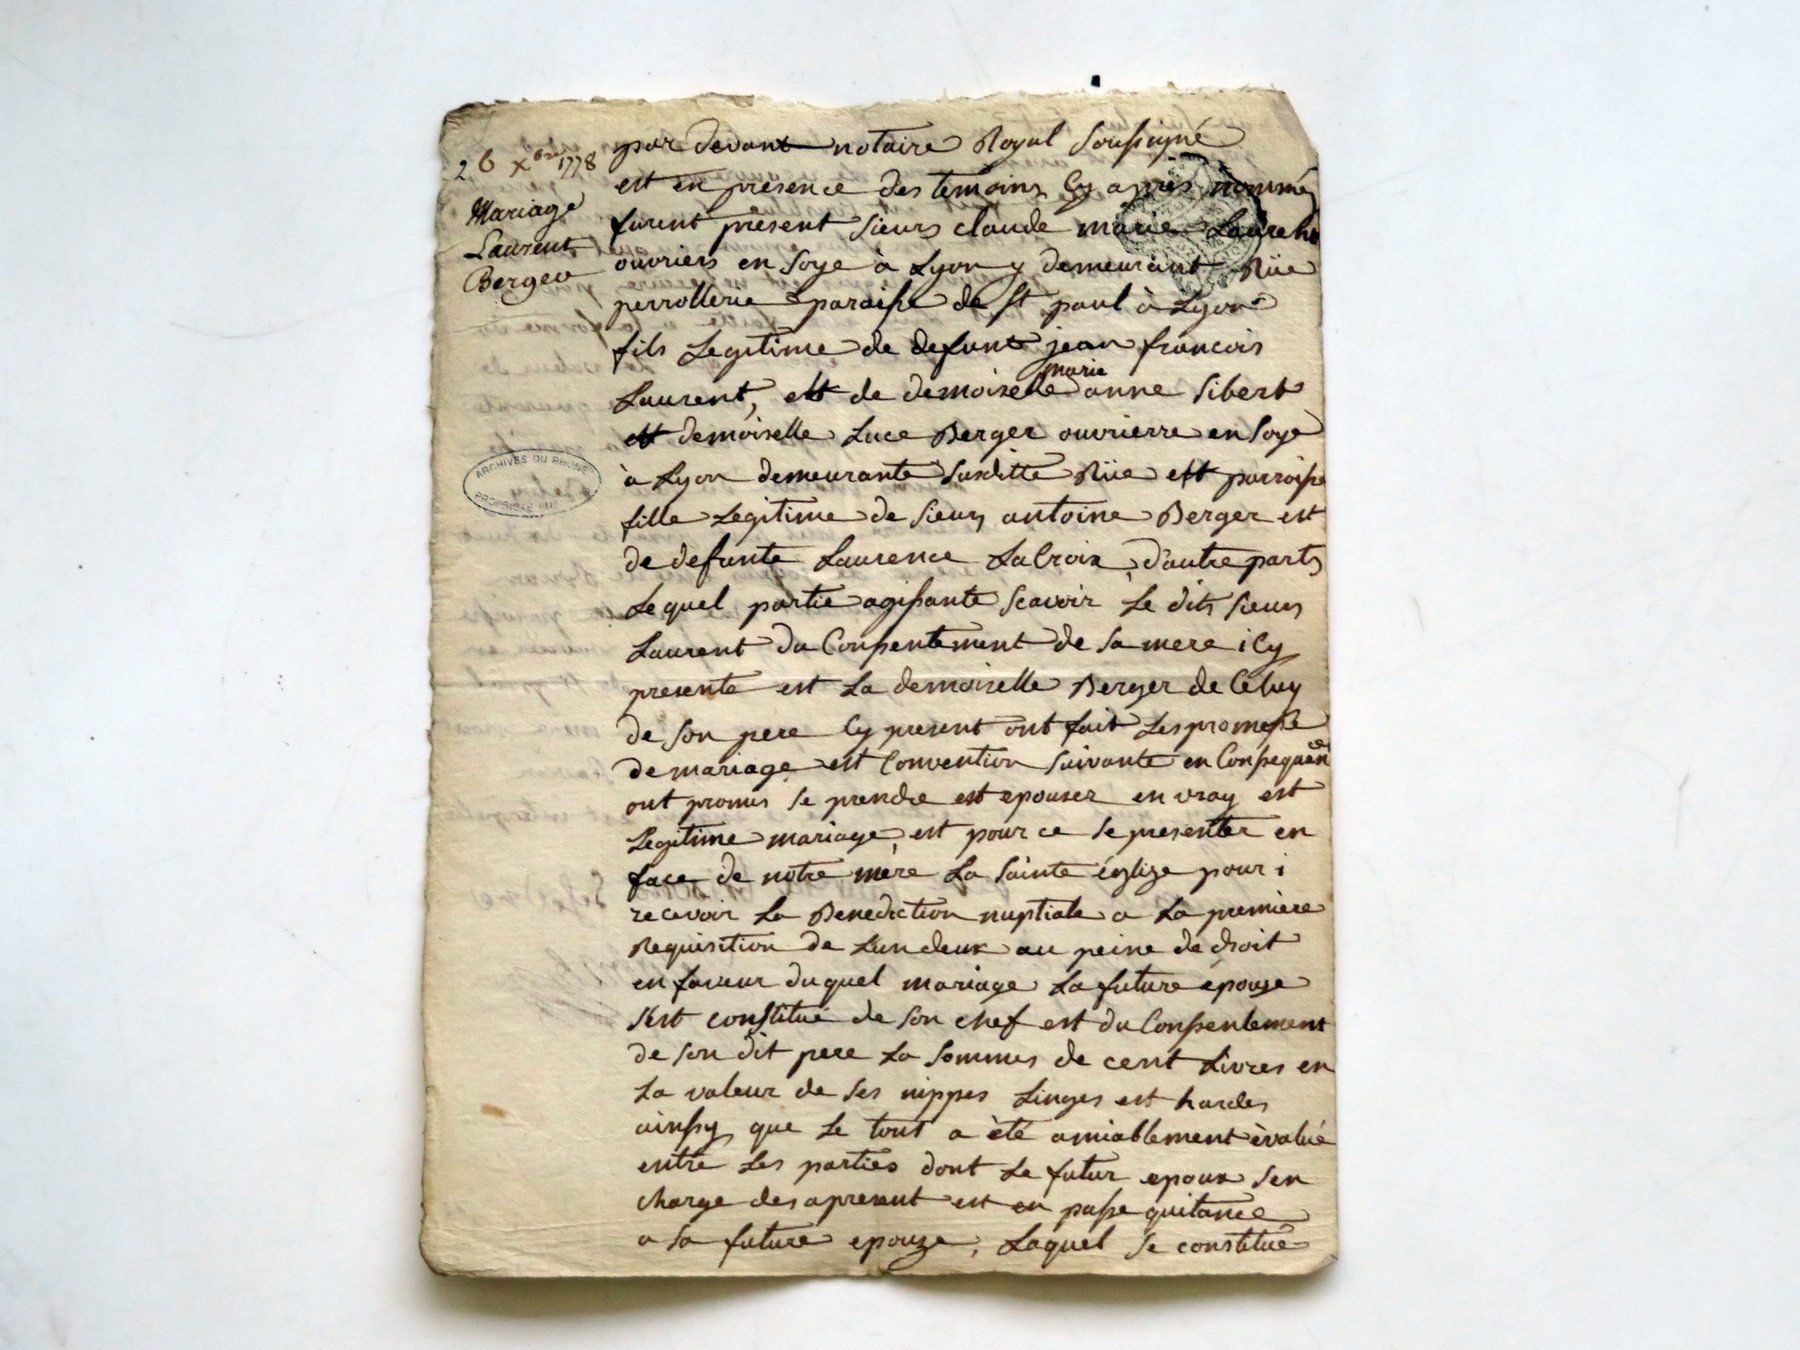 26 Xbre 1778
Mariage
Laurent
Berger
ARCHIVES DU RHONE
PROPRIETE PUB
par devant notaire Royal soussigné
est en presence des temoins cy apres nommé
furent present sieurs claude marie Laurent
ouvriers en soye à Lyon y demeurant Rüe
perrollerie paroisse de st paul à Lyon
fils Legitime de defunt jean francois
marie
Laurent, et de demoiselle anne Sibert
et demoiselle Luce Berger ouvrierre en soye
à Lyon demeurante susditte Rüe et parroisse
fille Legitime de sieurs antoine Berger est
de defunte Laurence LaCroix d'autre parts
Lequel partie agissante scavoir Le dits sieurs
Laurent du Conssentement de sa mere iCy
presente est La demoiselle Berger de Celuy
de son pere Cy present ont fait Les promesse
de mariage est Convention suivante en Conssequence
ont promis se prendre est epouser en vray est
Legitime mariage est pour ce se presenter en
face de notre mère La sainte églize pour i
recevoir La Benediction nuptiale a La première
Requisition de Lun deux au peine de droit
en faveur duquel mariage La future épouze
s'est constitué de son chef est du Conssentement
de son dit pere La sommes de cent Livres en
La valeur de ses nippes Linges est hardes
ainssy que Le tout a été amiablement évalué
entre Les parties dont Le futur epoux s'en
charge des apresent est en passe quitance
a sa future epouze, Laquel se constitue